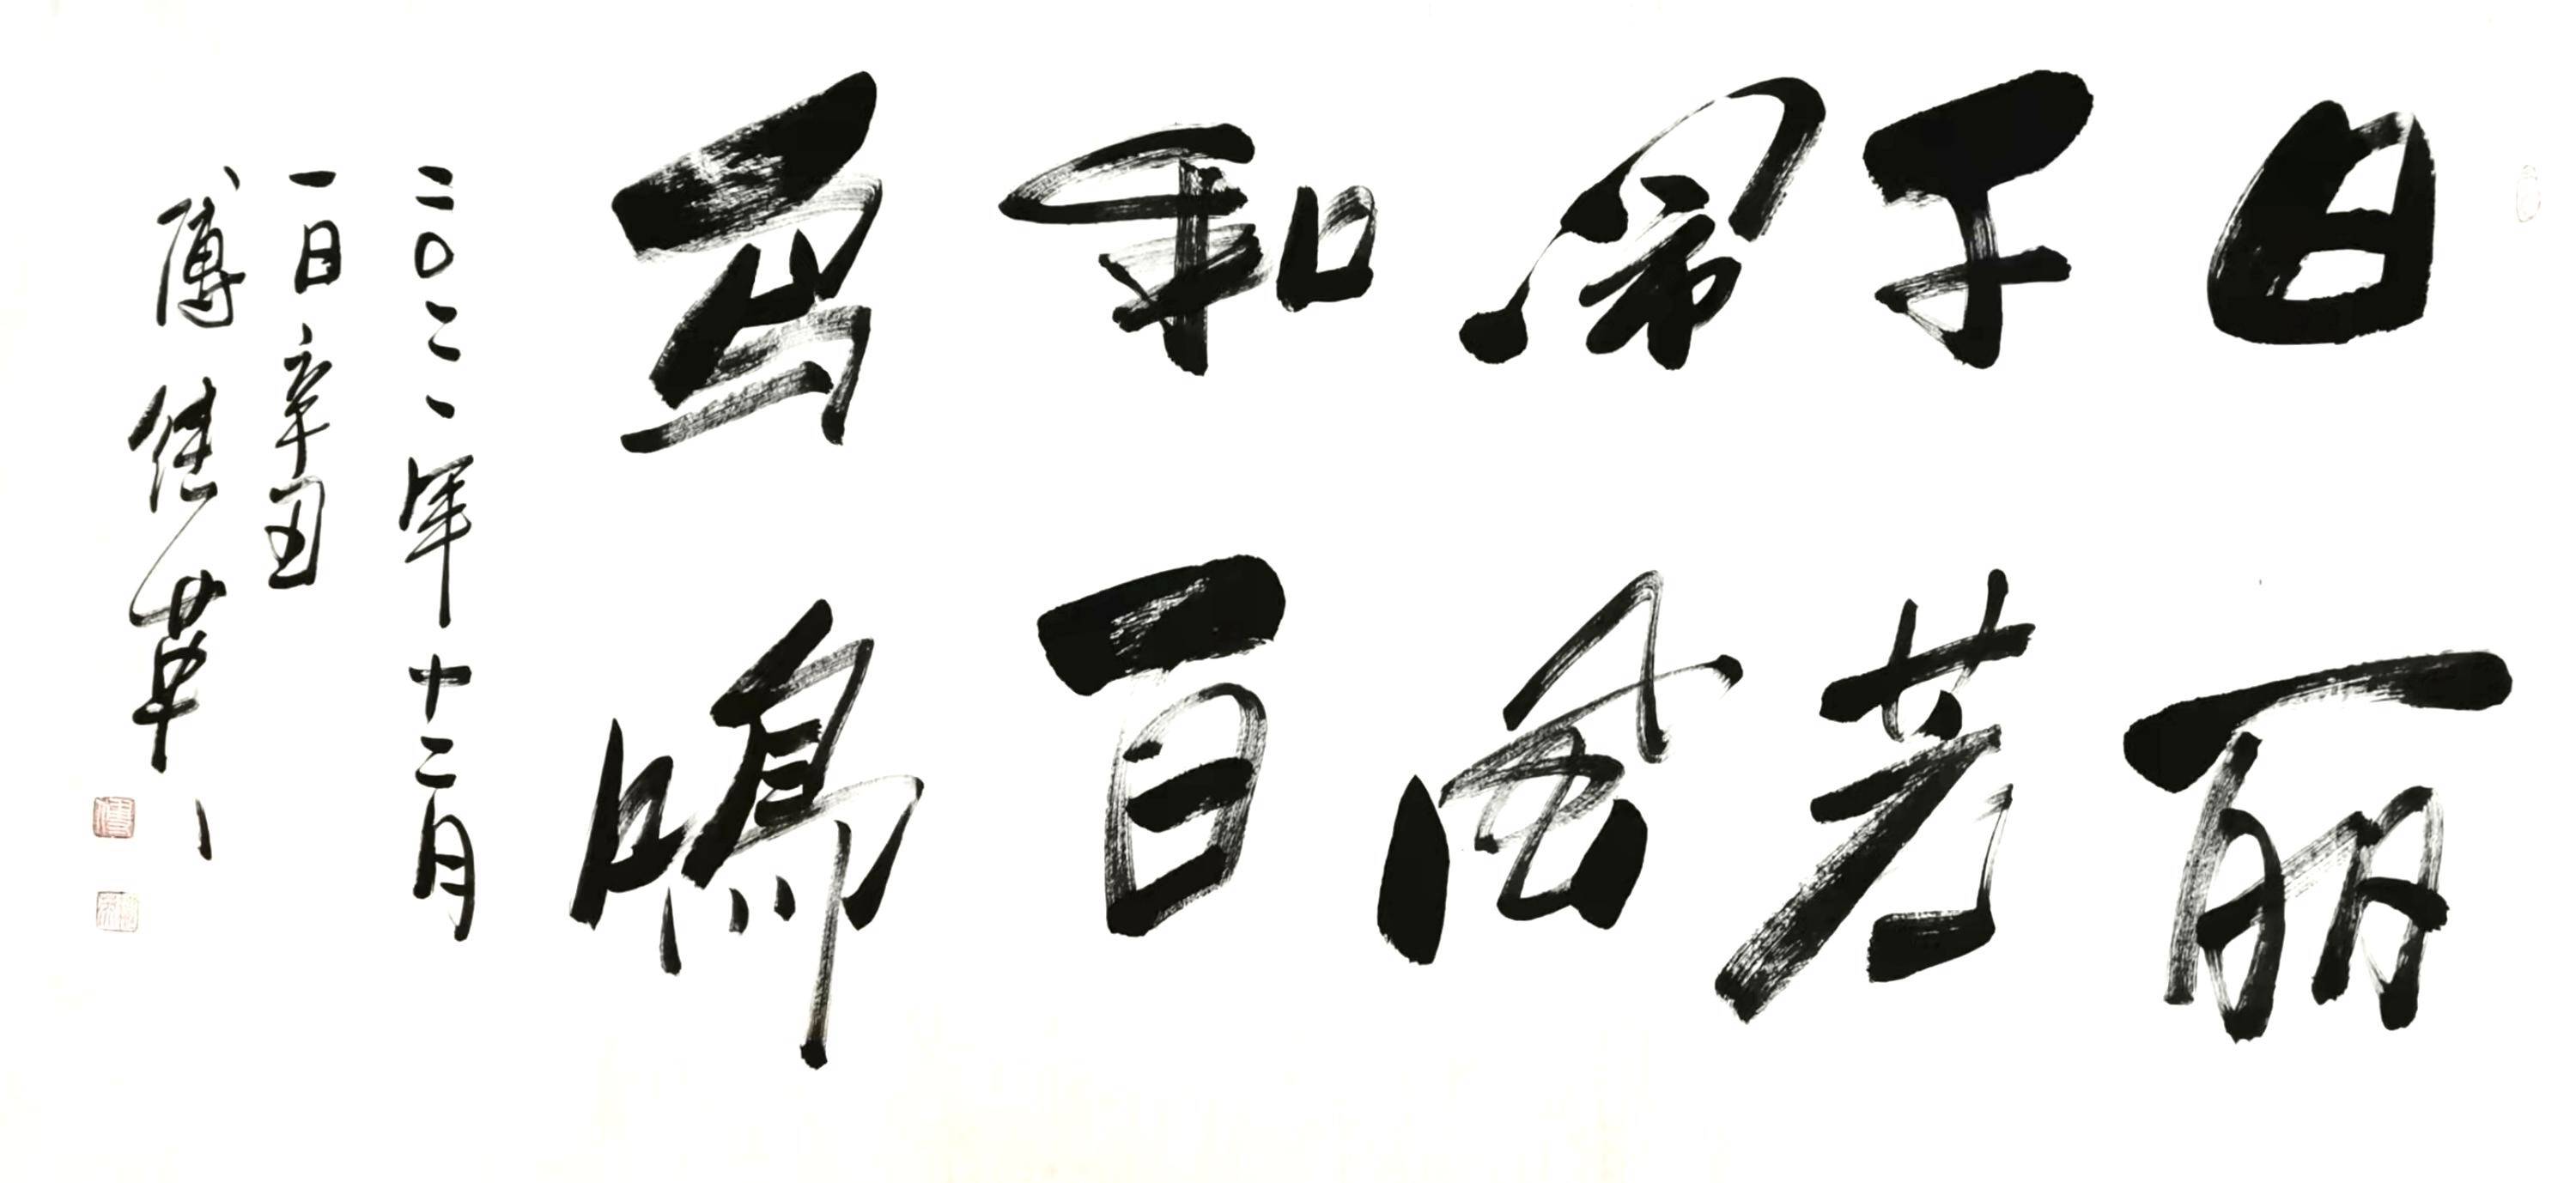 日丽
千芳
闹風
和百
鸟鳴
二〇二一年十二月
一日辛丑
傅健華